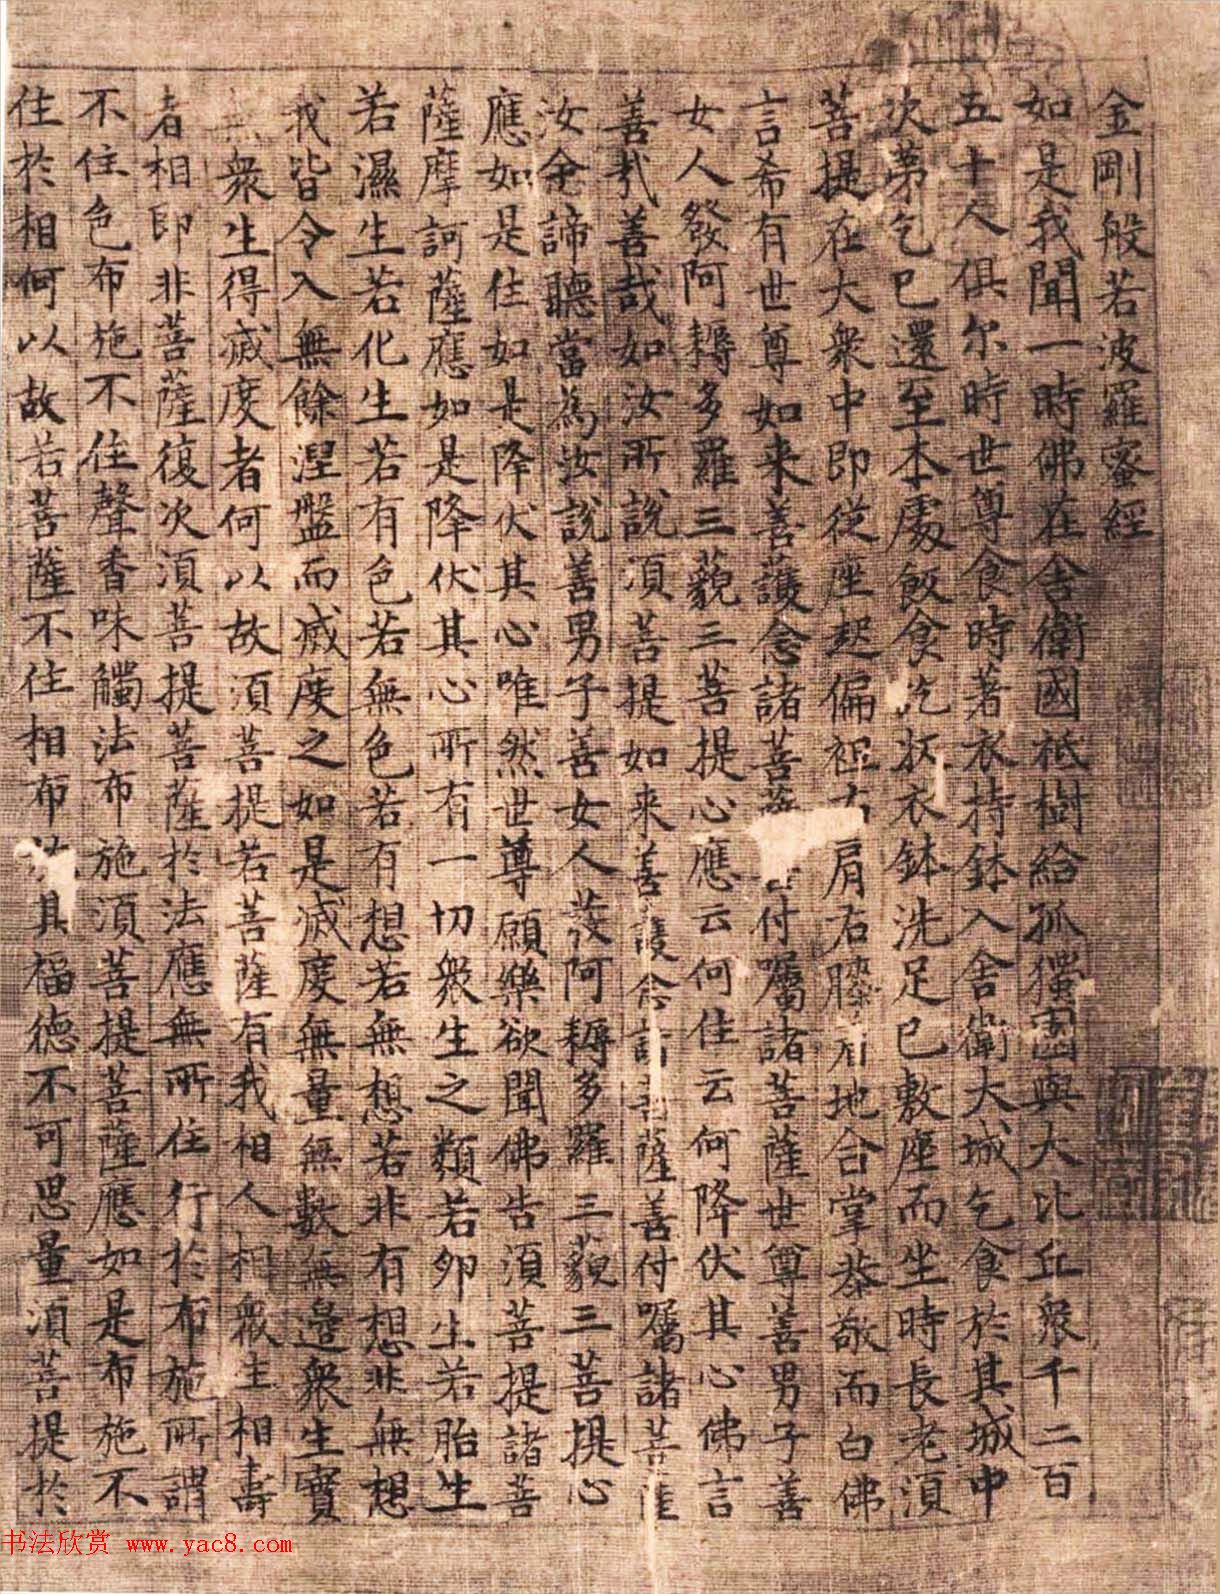 金剛般若波羅蜜經
如是我聞一時佛在舍衛國祇樹給孤獨園與大比丘衆千二百
五十人俱尔時世尊食時著衣持鉢入舍衛大城乞食於其城中
次第乞已還至本處飯食訖衣鉢洗足已敷座而坐時長老須
菩提在大衆中即從座起偏袒右肩右膝着地合掌恭敬而白佛
言希有世尊如来善護念諸菩薩付囑諸菩薩世尊善男子善
女人發阿耨多羅三藐三菩提心應云何住云何降伏其心佛言
善哉善哉如汝所說須菩提如来善護念諸菩薩善付囑諸菩薩
汝今諦聽當為汝說善男子善女人發阿耨多羅三藐三菩提心
應如是住如是降伏其心唯然世尊願樂欲聞佛告須菩提諸菩
薩摩訶薩應如是降伏其心所有一切衆生之類若卵生若胎生
若濕生若化生若有色若無色若有想若無想若非有想非無想
我皆令入無餘涅盤而滅度之如是滅度無量無數無邊衆生實
無衆生得滅度者何以故須菩提若菩薩有我相人相衆生相壽
者相即非菩薩復次須菩提菩薩於法應無所住行於布施所謂
不住色布施不住聲香味觸法布施須菩提菩薩應如是布施不
住於相何以故若菩薩不住相布其福德不可思量須菩提於
书法欣赏 www.yac8.com